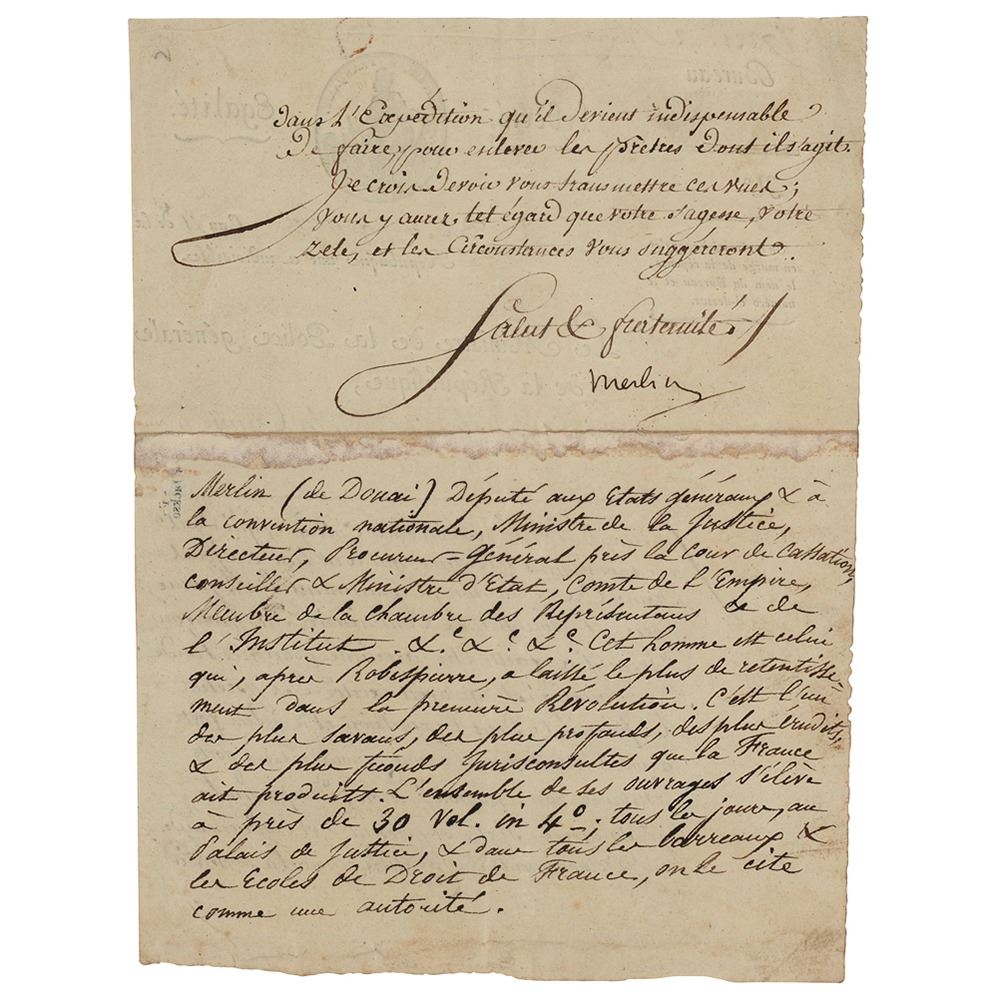 dans l'Expédition qu'il devient indispensable
de faire, pour enlever les prêtres dont il s'agit.
Je crois devoir vous transmettre ces vues;
vous y aurez tel égard que votre sagesse, votre
zèle, et les Circonstances vous suggéreront.
Salut & fraternité
Merlin
Merlin (de Douai) Député aux Etats généraux & à
la convention nationale, Ministre de la Justice,
Directeur, Procureur=Général près la Cour de Cassation,
conseiller & Ministre d'Etat, Comte de l'Empire,
Membre de la chambre des Représentans & de
l'Institut. &c. &c. &c. Cet homme est celui
qui, après Robespierre, a laissé le plus de retentisse-
ment dans la première Révolution. C'est l'un
des plus savans, des plus profonds, des plus érudits,
& des plus féconds Jurisconsultes que la France
ait produits. L'ensemble de ses ouvrages s'élève
à près de 30 Vol. in 4°; tous les jours, au
Palais de Justice, & dans tous les barreaux &
les Ecoles de Droit de France, on le cite
comme une autorité.